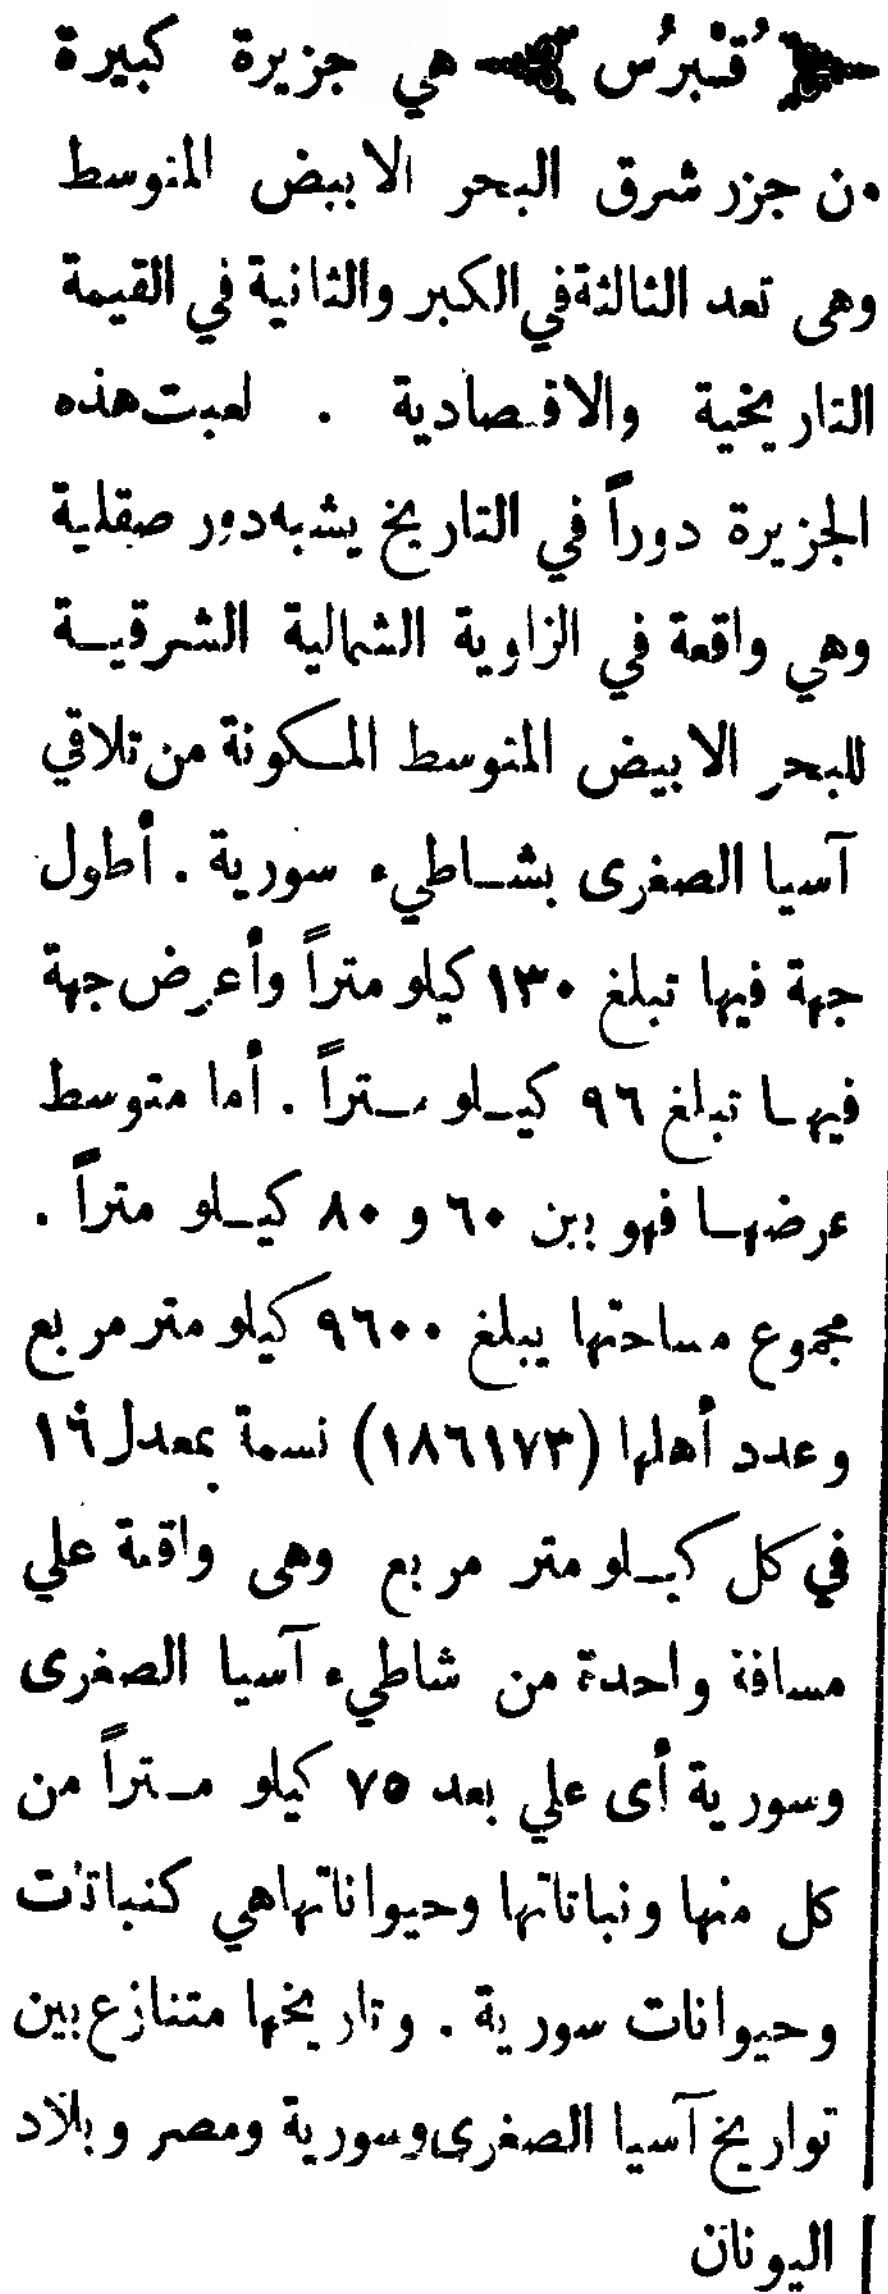 قُبْرُس هي جزيرة كبيرة
من جزر شرق البحر الابيض المتوسط
وهى تعد الثالثة في الكبر والثانية في القيمة
التاريخية والاقتصادية . لعبت هذه
الجزيرة دوراً في التاريخ يشبه دور صقلية
وهي واقعة في الزاوية الشمالية الشرقية
للبحر الابيض المتوسط المكونة من تلاقي
آسيا الصغرى بشاطيء سورية . أطول
جهة فيها تبلغ ١٣٠ كيلو متراً وأعرض جهة
فيها تبلغ ٩٦ كيلو متراً . أما متوسط
عرضها فهو بين ٦٠ و ٨٠ كيلو متراً .
مجموع مساحتها يبلغ ٩٦٠٠ كيلو متر مربع
وعدد أهلها (١٨٦١٧٣) نسمة بمعدل ١٩
في كل كيلو متر مربع وهى واقعة علي
مسافة واحدة من شاطيء آسيا الصغرى
وسورية أى علي بعد ٧٥ كيلو متراً من
كل منها ونباتاتها وحيواناتها هي كنباتات
وحيوانات سورية . وتاريخها متنازع بين
تواريخ آسيا الصغرى وسورية ومصر وبلاد
اليونان